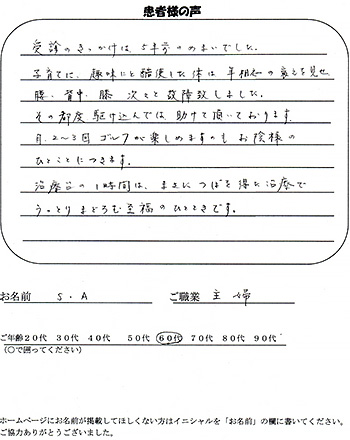 患者様の声
受診のきっかけは 5年前のめまいでした。
子育てに、趣味にと酷使した体は 年相応の衰えを見せ
腰、背中、膝 次々と故障致しました。
その都度駆け込んでは 助けて頂いております。
月、2〜3回 ゴルフが楽しめますのも お陰様の
ひとことにつきます。
治療台の1時間は、まさに つぼを得た治療で
うっとり まどろむ至福のひとときです。
お名前 S・A ご職業 主婦
ご年齢 20代 30代 40代 50代 60代 70代 80代 90代
(〇で囲ってください)
ホームページにお名前が掲載してほしくない方はイニシャルを「お名前」の欄に書いてください。
ご協力ありがとうございました。